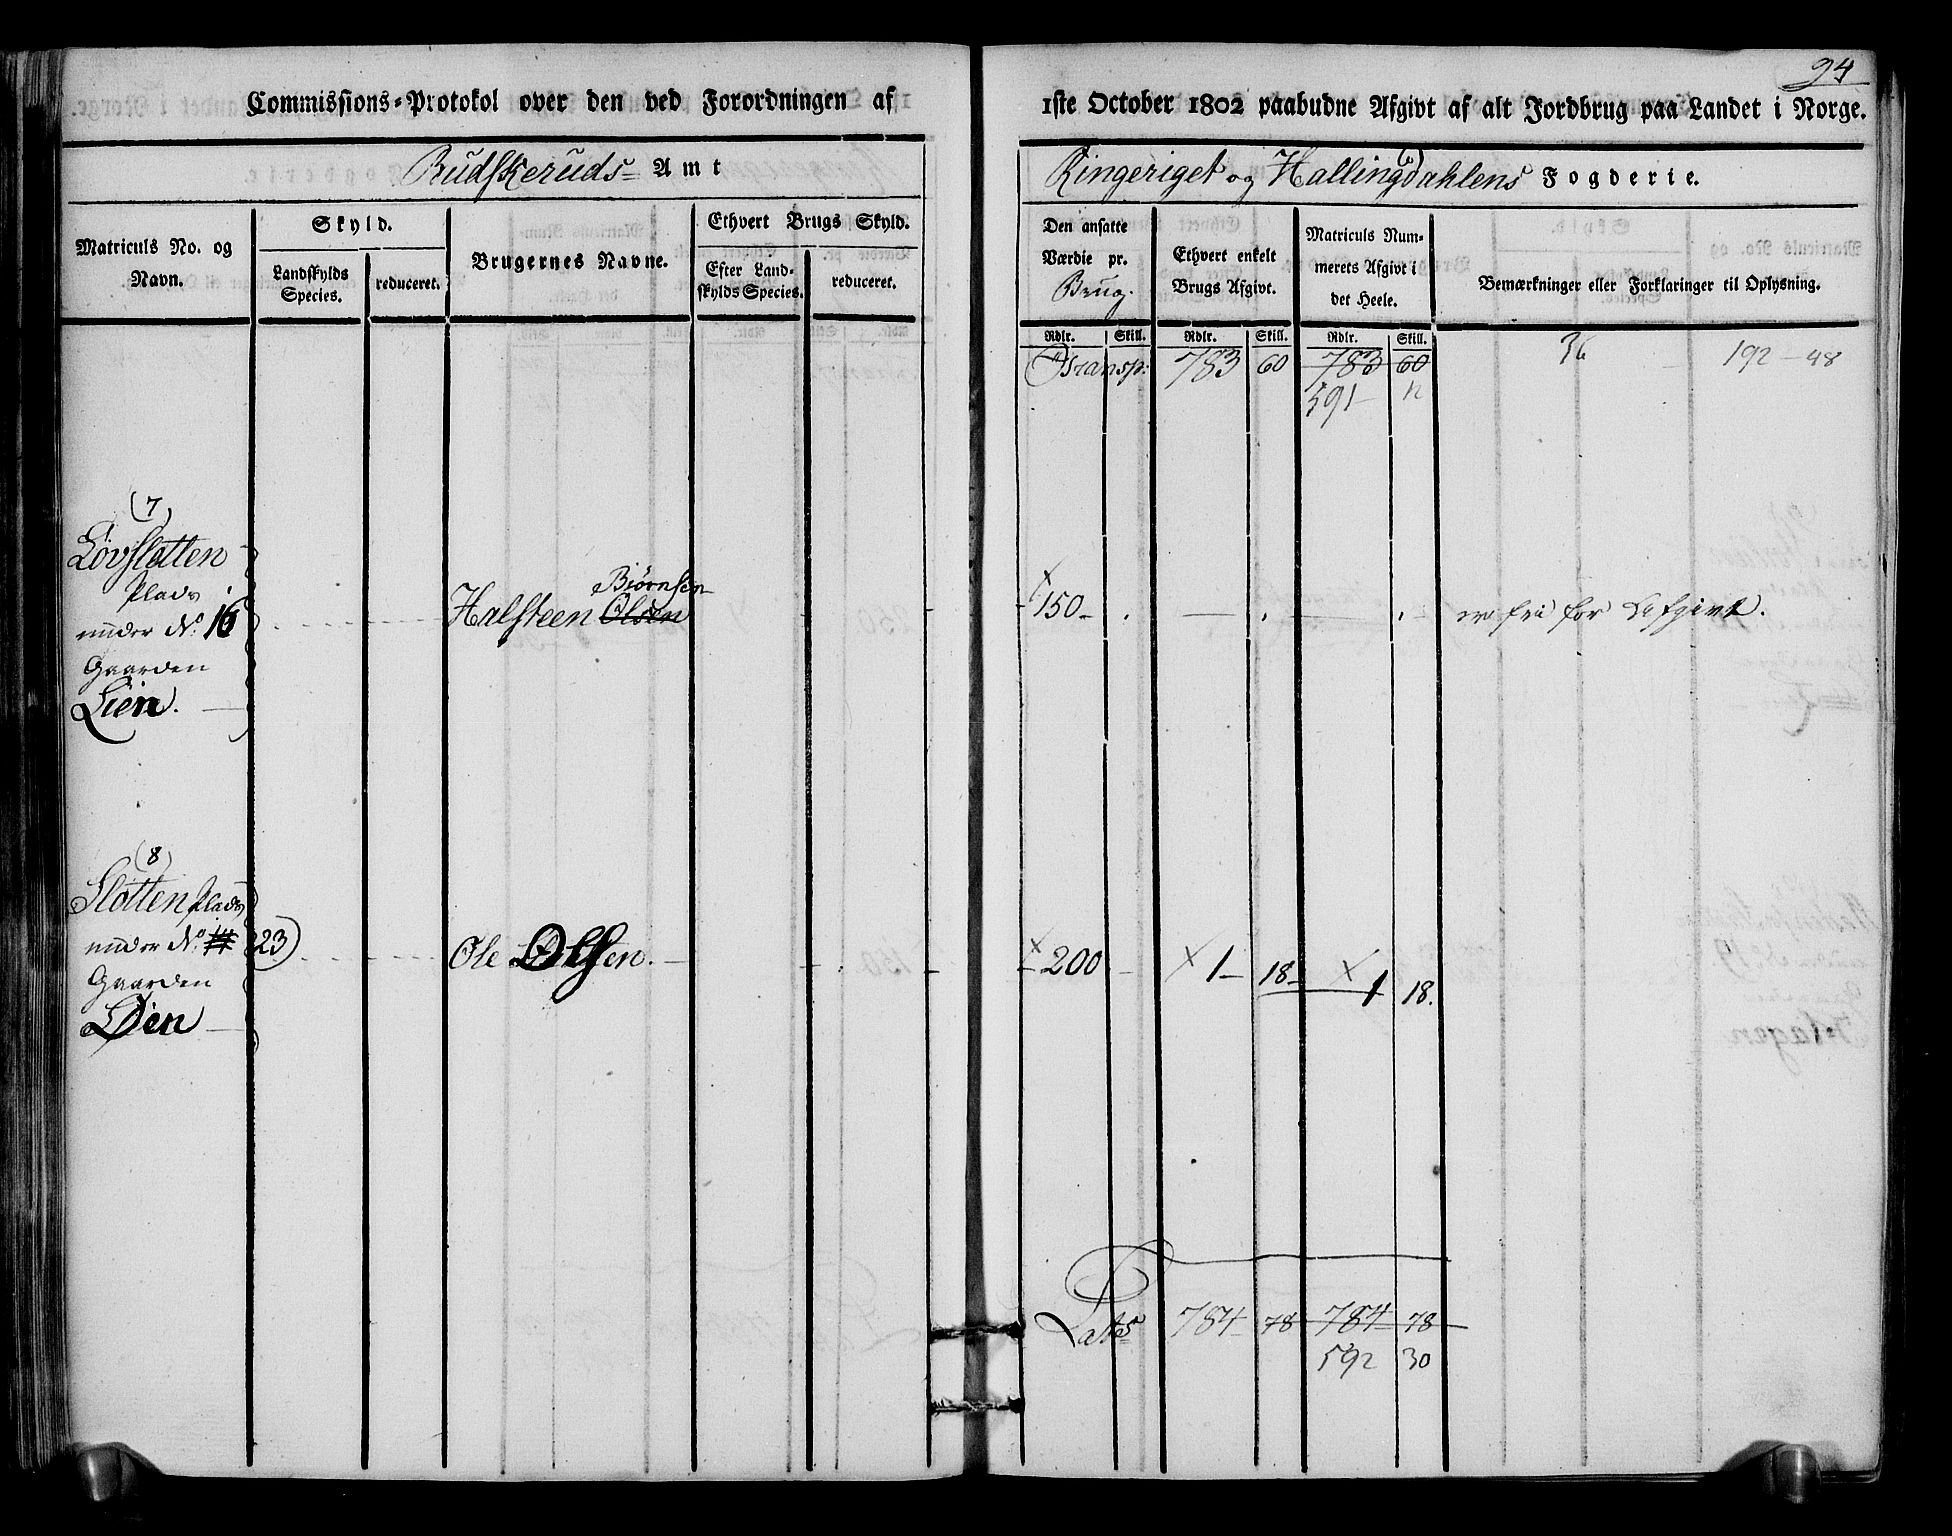 94
Commissions=Protokol over den ved Forordningen af 1ste October 1802 paabudne Afgivt af alt Jordbrug paa Landet i Norge.
Budskeruds= Amt
Ringeriget og Hallingdahlens Fogderie.
Matriculs No. og Navn.
Skyld.
Landskylds Species.
reduceret.
Brugernes Navne.
Ethvert Brugs Skyld.
Efter Landskylds Species.
reduceret.
Den ansatte Værdie pr. Brug.
Ethvert enkelt Brugs Afgivt.
Matriculs Nummerets Afgivt i det Heele.
Bemærkninger eller Forklaringer til Oplysning.
Rdlr. Skill. Rdlr. Skill. Rdlr. Skill.
Transp: 783 60 783 60 36 192 - 48
591 - 12
(7)
Løvslotten
Plads
under No. 16
Gaarden
Lien.
Bjørnsen
Halsteen Olsen
150 - . — . . - er fri for Afgivt.
(8)
Slotten Plads
under No. 23)
Gaarden
Lien
Ole Olsen. —
200 - 1 - 18 - 1 18.
Lats 784 78 784 78
592 30